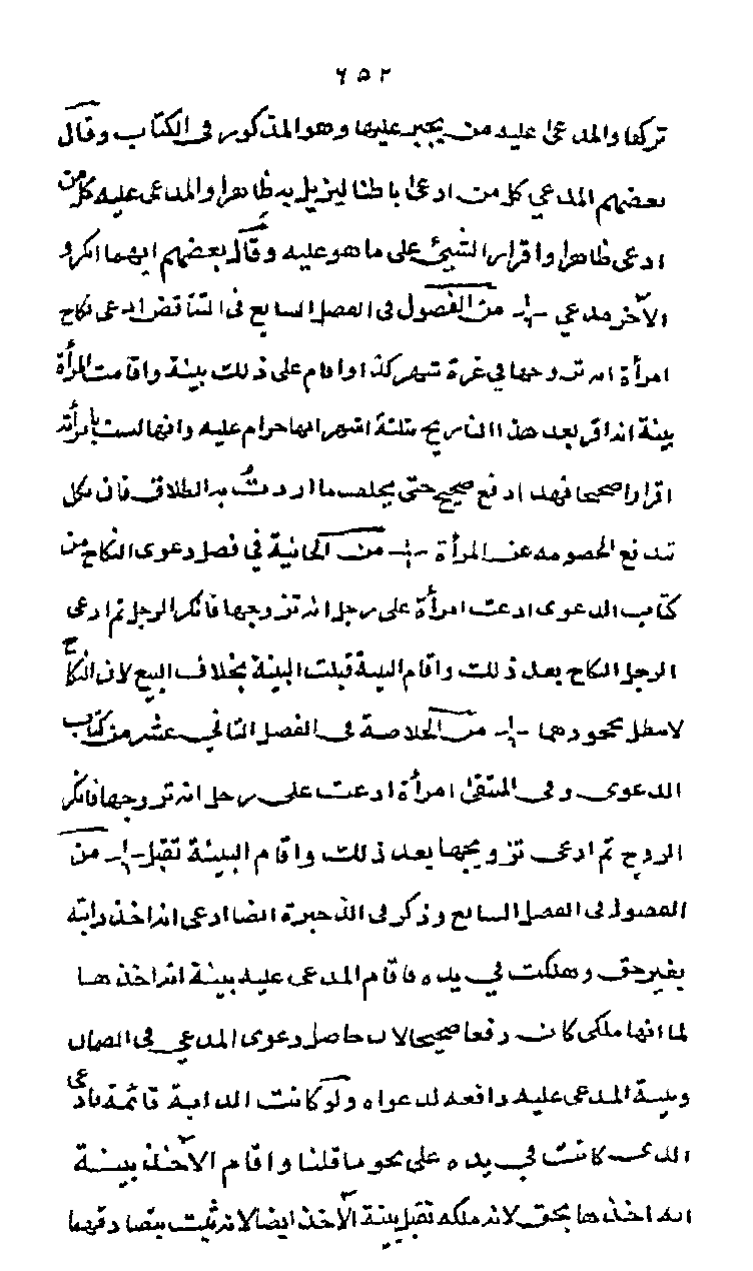 ٦٥٢
تركها والمدعى عليه من يجبر عليها وهو المذكور فى الكتاب وقال
بعضهم المدعي كل من ادعى باطنا ليزيل به ظاهرا والمدعى عليه كل من
ادعى ظاهرا واقرار الشيئ على ما هو عليه وقال بعضهم ايهما انكر و
الآخر مدعي من الفصول فى الفصل السابع فى التناقض ادعى نكاح
امرأة انه تزوجها في غرة شهر كذا واقام على ذلك بينة واقامت المرأة
بينة انه اقر بعد هذا التاريخ بثلثة اشهر انها حرام عليه وانها ليست بامرأته
اقرارا صحيحا فهذا دفع صحيح حتى يحلف ما اردت به الطلاق فان نكل
تندفع الخصومه عن المرأة من الخانية في فصل دعوى النكاح من
كتاب الدعوى ادعت امرأة على رجل انه تزوجها فانكر الرجل ثم ادعى
الرجل النكاح بعد ذلك واقام البينة قبلت البينة بخلاف البيع لان النكاح
لا يبطل بجحودهما من الخلاصة فى الفصل الثاني عشر من كتاب
الدعوى وفى المنتقى امرأة ادعت على رجل انه تزوجها فانكر
الزوج ثم ادعى تزويجها بعد ذلك واقام البينة تقبل من
الفصول فى الفصل السابع وذكر فى الذخيرة ايضا ادعى انه اخذ دابته
بغير حق وهلكت في يده فاقام المدعى عليه بينة انه اخذها
لما انها ملكى كان دفعا صحيحا لان حاصل دعوى المدعي فى الضمان
وبينة المدعى عليه دافعه لدعواه ولو كانت الدابة قائمة فادعى
الذى كانت في يده على نحو ما قلنا واقام الآخذ بينة
انه اخذها بحق لانه ملكه تقبل بينة الآخذ ايضا لانه ثبت بتصادقهما